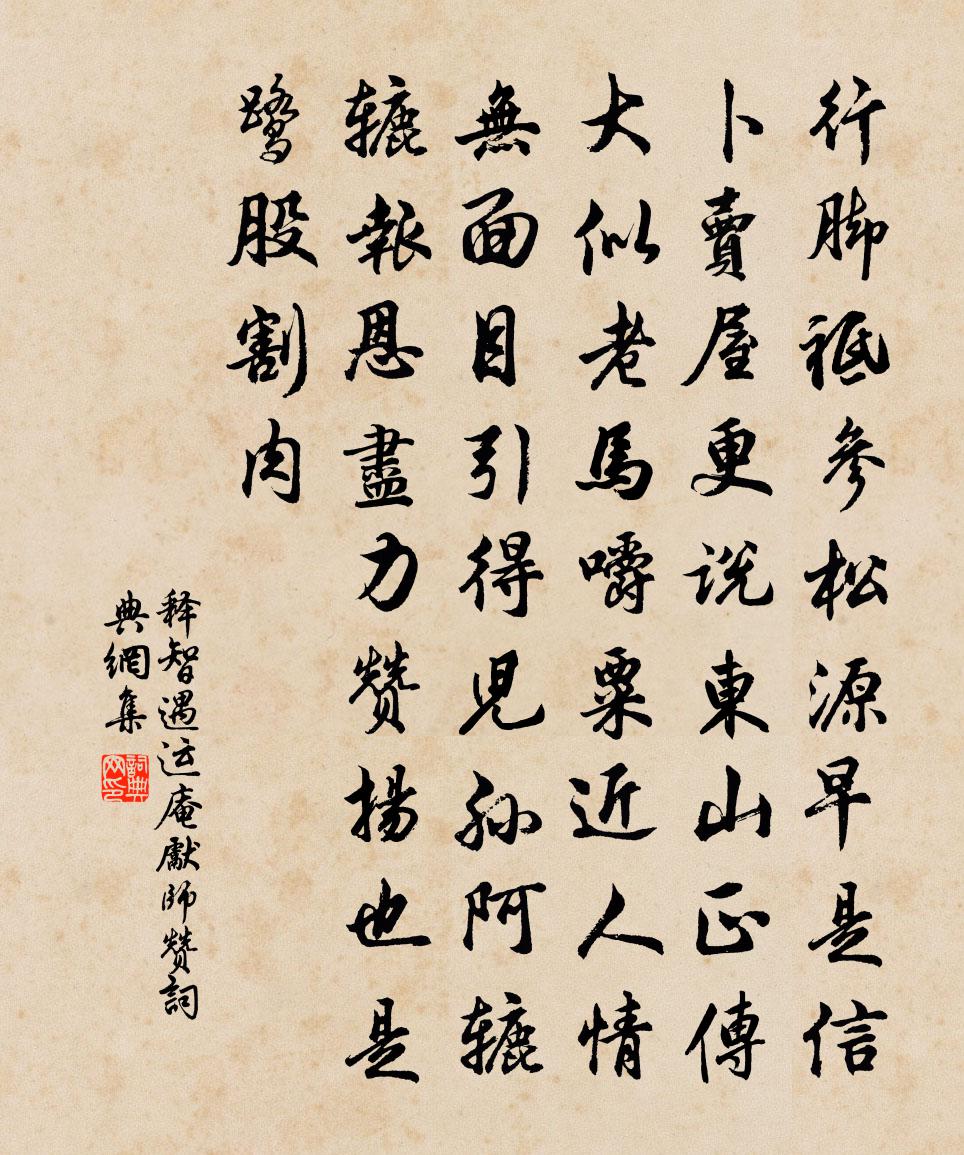 行脚祗參松源早是信
卜賣屋更說東山正傳
大似老馬嚼粟近人情
無面目引得児孫阿轆
轆報恩盡力赞揚也是
鷺股割肉
释智遇运庵獻師赞詞
典網集
詞典网印